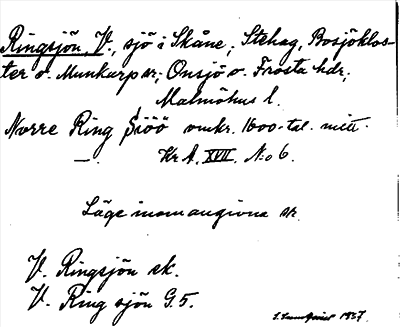 Ringsjön, V., sjö i Skåne; Stehag, Bosjöklos-
ter o. Munkarp snr; Onsjö o. Frosta hdr;
Malmöhus l.
Norre Ring Siöö omkr. 1600-tal. mitt.
—. Kr A. XVII. No 6.
Läge inom angivna sk.
V. Ringsjön ek.
V. Ring sjön G.5.
1937.